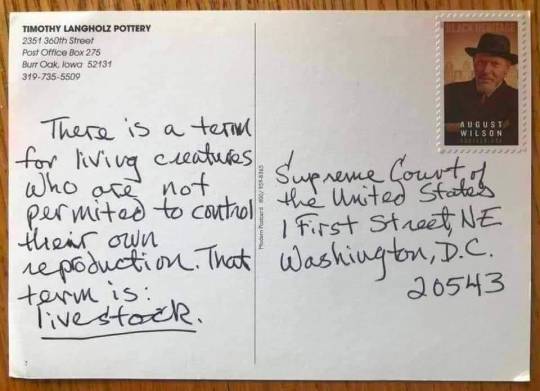 TIMOTHY LANGHOLZ POTTERY
2351 360th Street
Post Office Box 275
Burr Oak, Iowa 52131
319-735-5509
There is a term
for living creatures
who are not
permited to control
their own
reproduction. That
term is:
livestock.
Modern Postcard 800/959-8365
BLACK HERITAGE
AUGUST
WILSON
Supreme Court of
the United States
1 First Street, NE
Washington, D.C.
20543